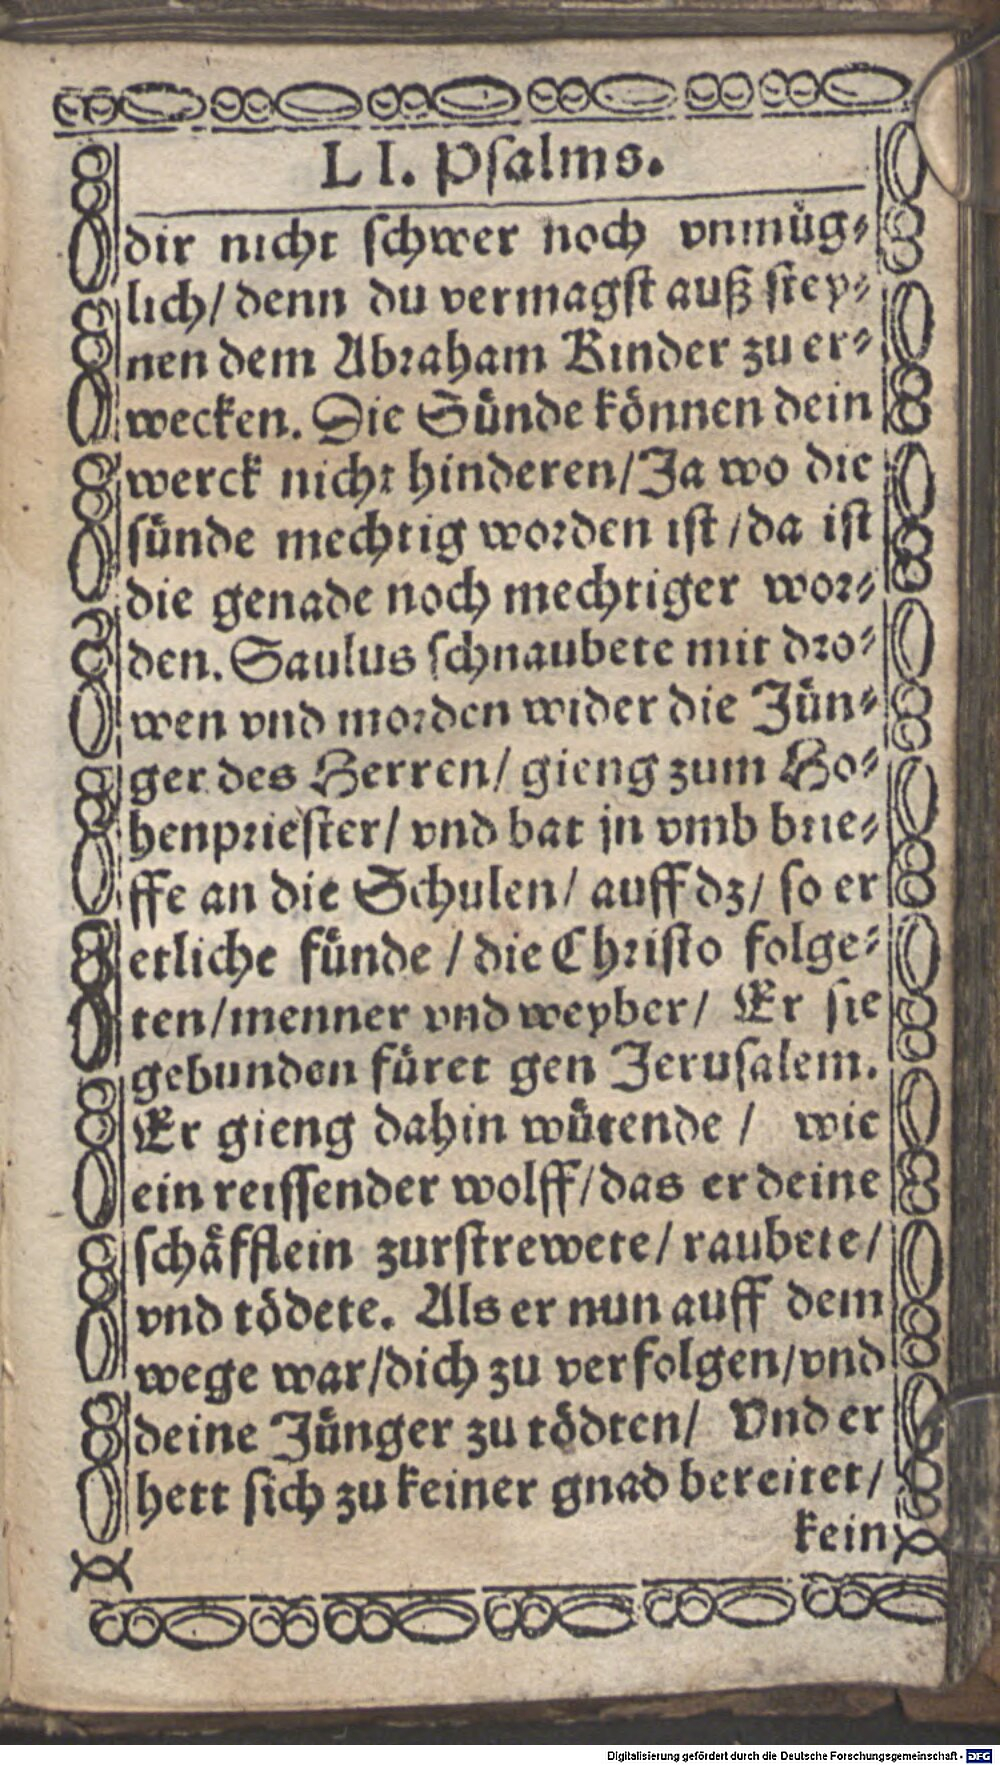 LI. Psalms.
dir nicht schwer noch vnmüg⸗
lich/ denn du vermagst auß stey⸗
nen dem Abraham Kinder zu er⸗
wecken. Die Sünde können dein
werck nicht hinderen/ Ja wo die
sünde mechtig worden ist/ da ist
die genade noch mechtiger wor⸗
den. Saulus schnaubete mit dro⸗
wen vnd morden wider die Jün⸗
ger des Herren/ gieng zum Ho⸗
henpriester/ vnd bat jn vmb brie⸗
ffe an die Schulen/ auff dz/ so er
etliche fünde/ die Christo folge⸗
ten/ menner vnd weyber/ Er sie
gebunden füret gen Jerusalem.
Er gieng dahin wütende/ wie
ein reissender wolff/ das er deine
schäfflein zurstrewete/ raubete/
vnd tödete. Als er nun auff dem
wege war/ dich zu verfolgen/ vnd
deine Jünger zu tödten/ Vnd er
hett sich zu keiner gnad bereitet/
kein
Digitalisierung gefördert durch die Deutsche Forschungsgemeinschaft - DFG